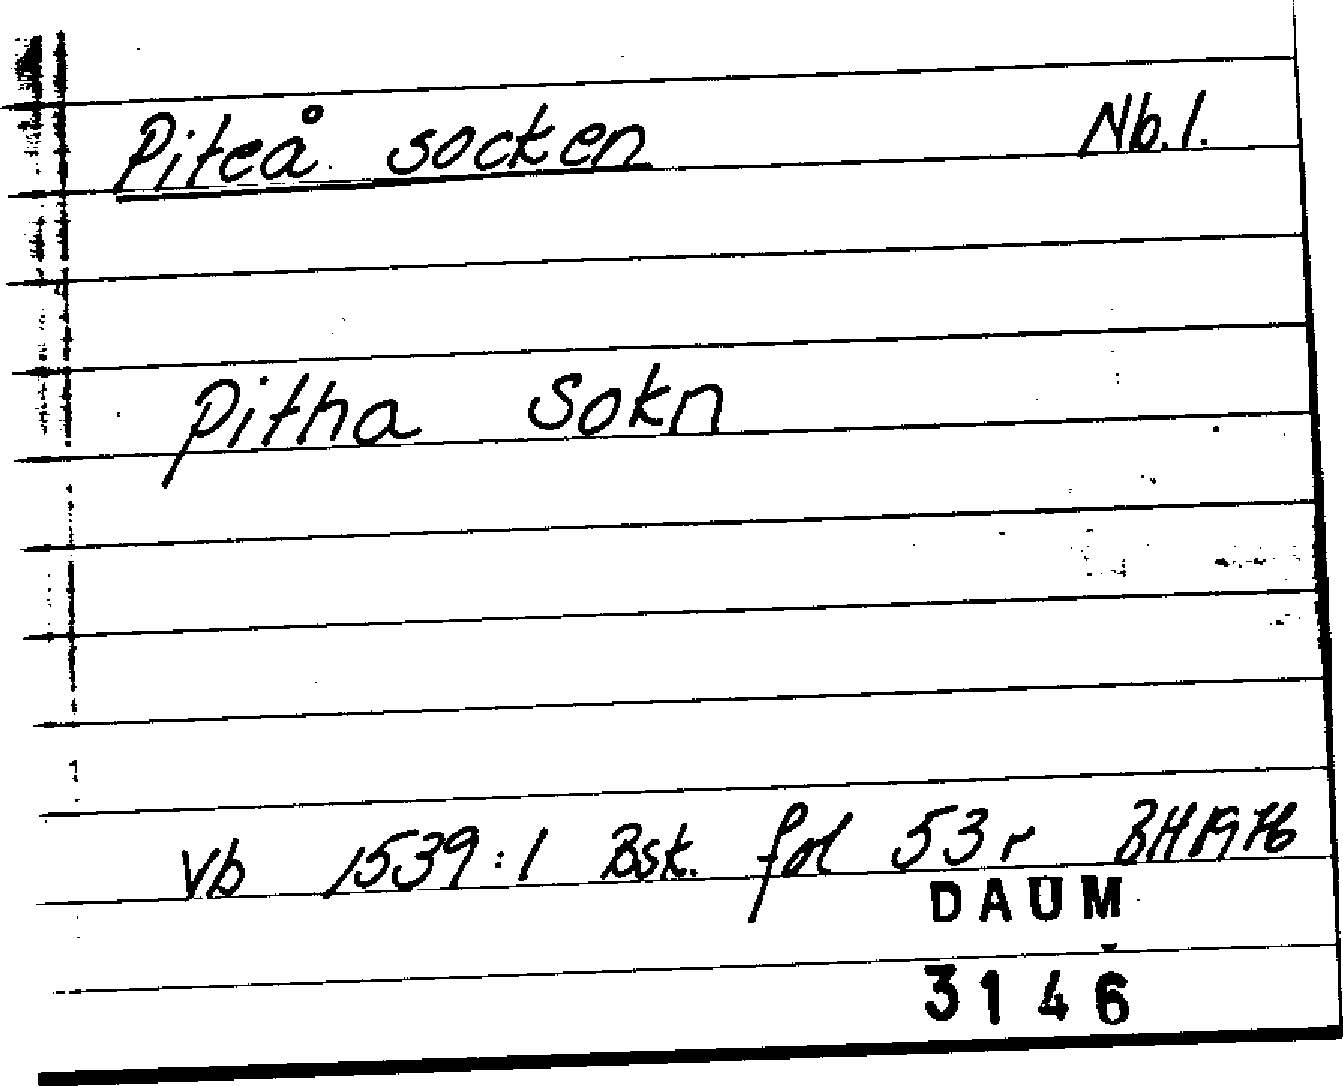 Piteå socken Nb.1.
pitha Sokn
Vb 1539:1 Bsk. fol 53 r BH 1976
DAUM
3146